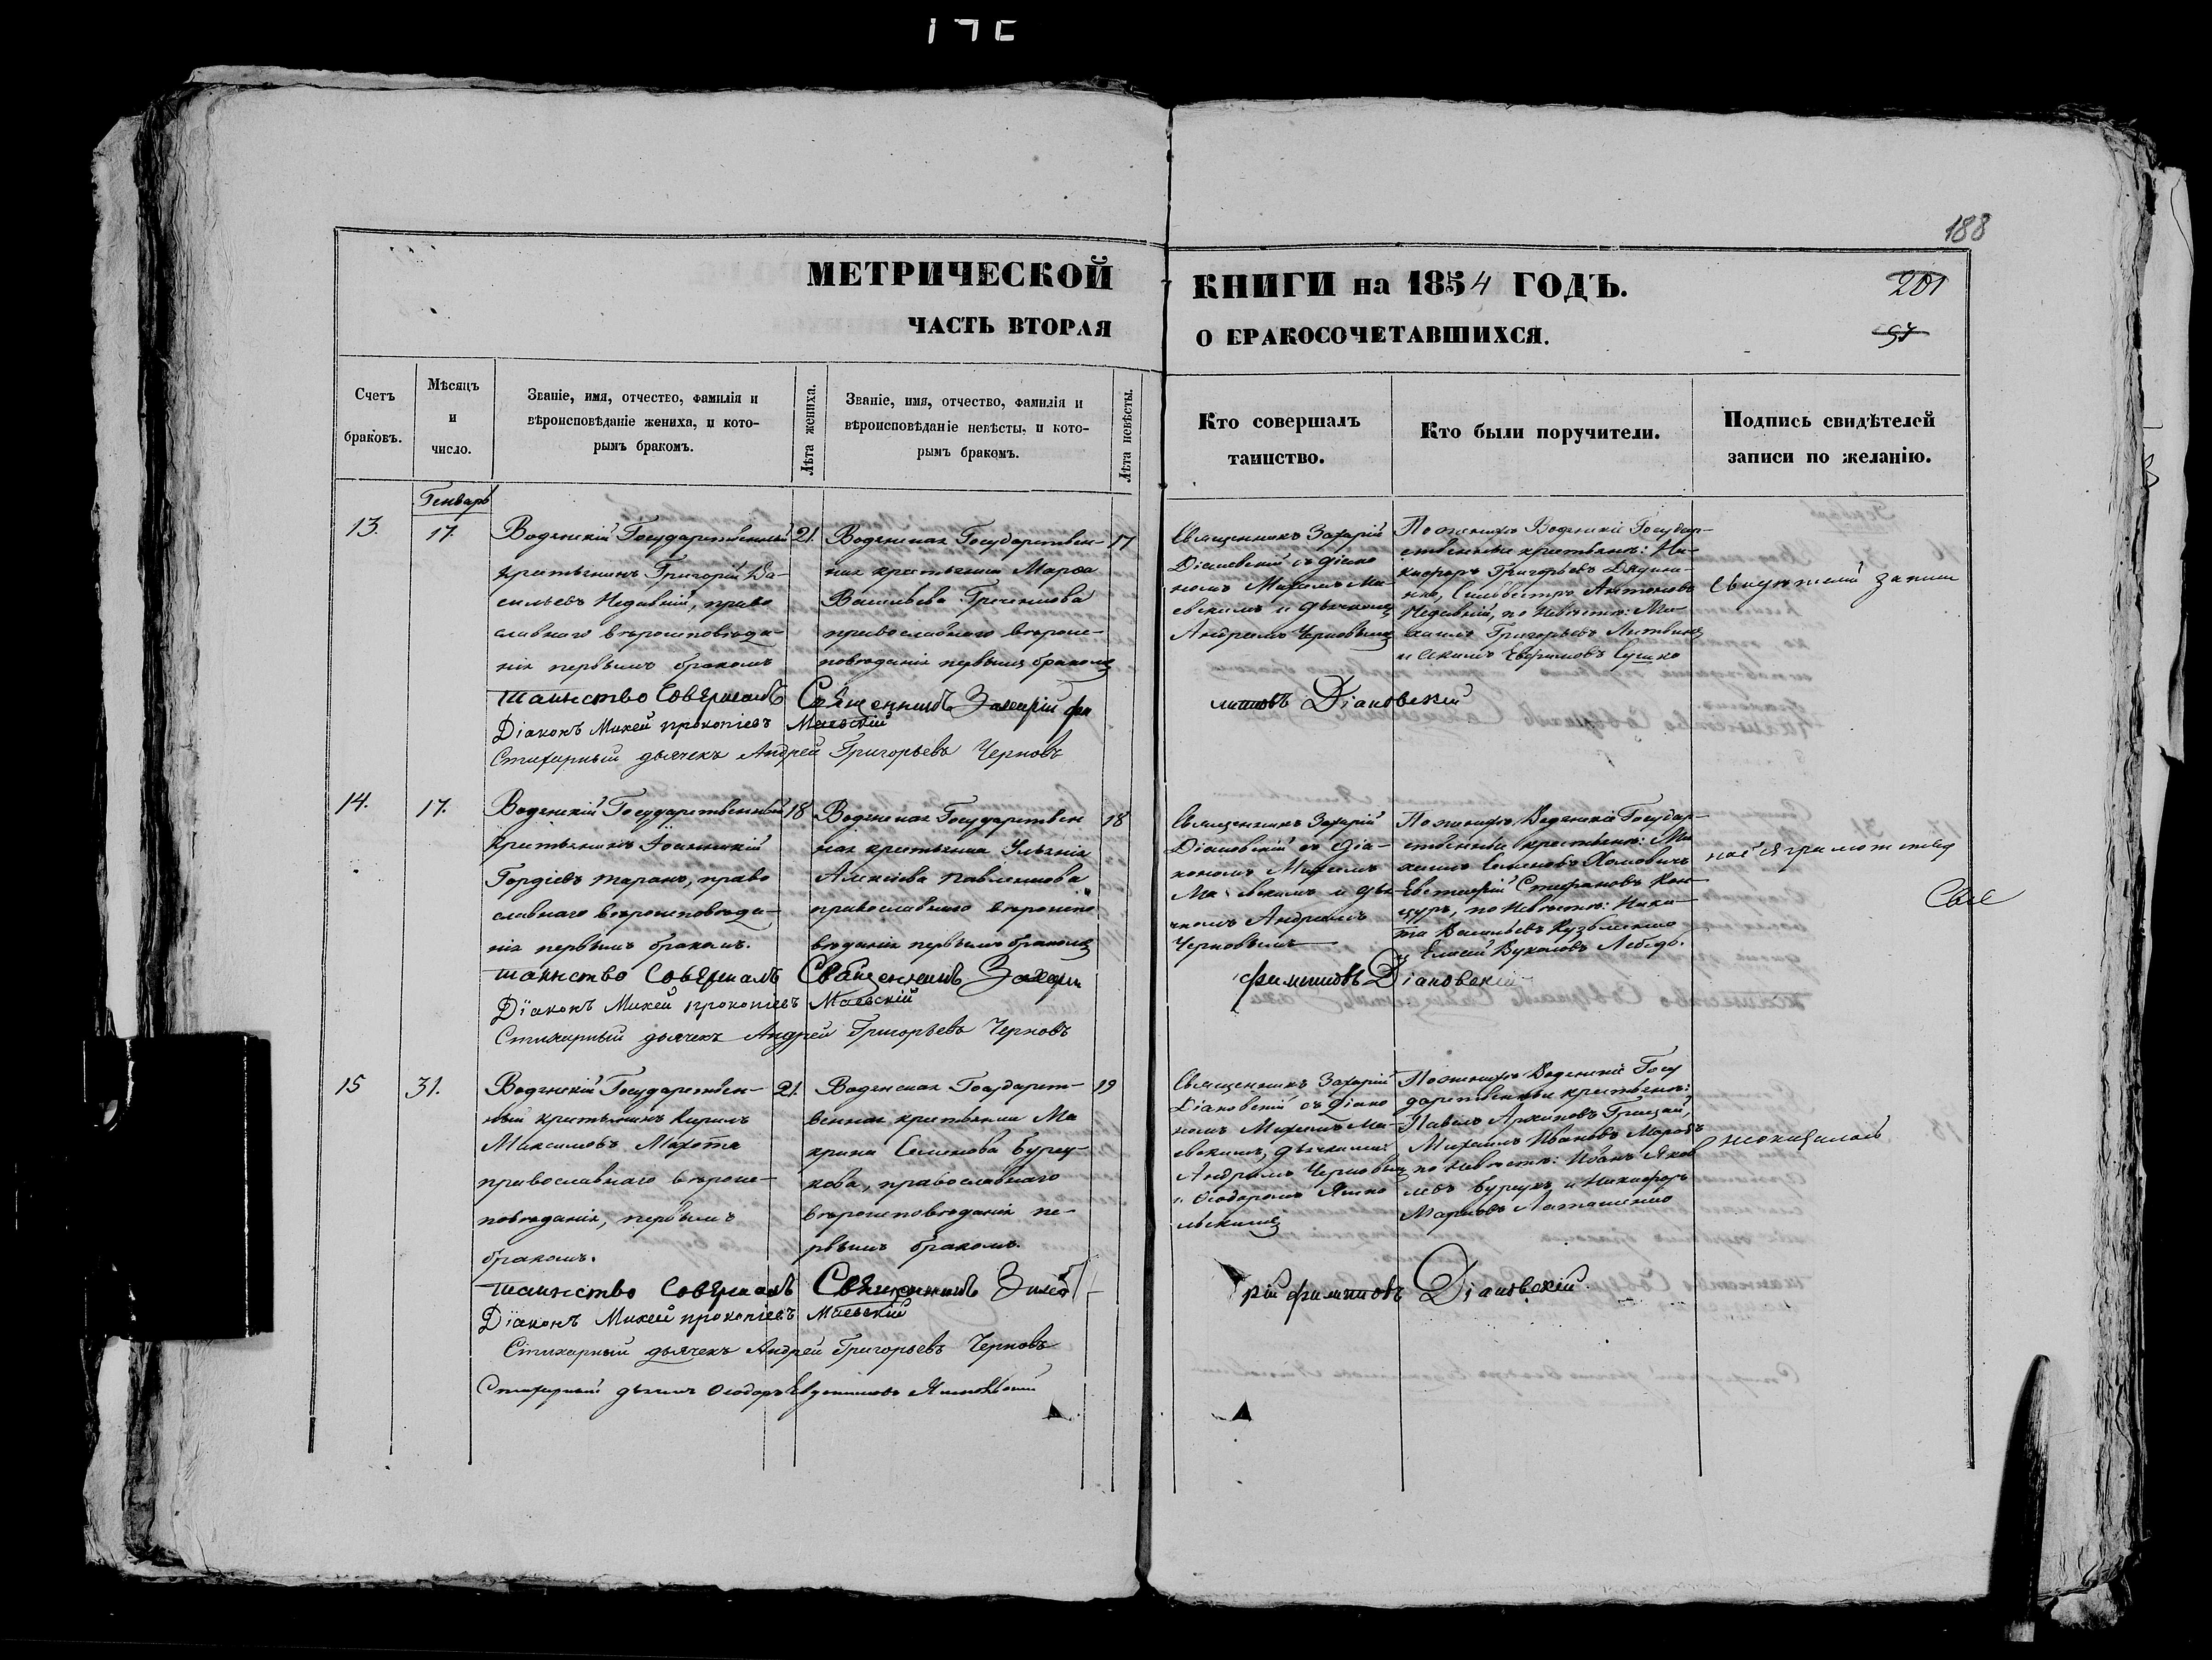 188
МЕТРИЧЕСКОЙ КНИГИ на 1854 ГОДЪ.
201
ЧАСТЬ ВТОРАЯ О БРАКОСОЧЕТАВШИХСЯ.
57
Счетъ браковъ.
Мѣсяцъ и число.
Званіе, имя, отчество, фамилія и
вѣроисповѣданіе жениха, и кото-
рымъ бракомъ.
Лѣта жениха.
Званіе, имя, отчество, фамилія и
вѣроисповѣданіе невѣсты, и кото-
рымъ бракомъ.
Лѣта невѣсты.
Кто совершалъ
таинство.
Кто были поручители.
Подпись свидѣтелей
записи по желанію.
Генварь
13.
17.
Водянскій Государственный
крестьянинъ Григорій Ва-
сильевъ Недавній, право
славнаго вѣроисповѣда-
нія первымъ бракомъ
21.
Водянская Государствен-
ная крестьянка Марѳа
Васильева Греченкова
православнаго вѣроис-
повѣданія первымъ бракомъ
17
Священникъ Захарій
Діановскій съ діако
номъ Михеемъ Ма-
евскимъ и дьячкомъ
Андреемъ Черновымъ
По женихѣ Водянскіе Государ-
ственные крестьяне: Ни-
кифоръ Григорьевъ
Сильвестръ Антоновъ
Недавній, по Невѣстѣ: Ми-
хаилъ Григорьевъ Литвинъ
и Акимъ Евфимовъ Сушко
Свидѣтелей записи
таинство Совершалъ Священникъ Захарій фи
липовъ Діановскій
Діаконъ Михей Прокопіевъ Маевскій
Стихарный дьячекъ Андрей Григорьевъ Черновъ
14.
17.
Водянскій Государственный
крестьянинъ Іоанникій
Гордіевъ Таранъ, право
славнаго вѣроисповѣда-
нія первымъ бракомъ.
18
Водянская Государствен
ная крестьянка Ульянія
Алексіева Павленкова
православнаго вѣроиспо
вѣданія первымъ бракомъ
18
Священникъ Захарій
Діановскій съ діа-
кономъ Михеемъ
Маевскимъ и дья-
чкомъ Андреемъ
Черновымъ
По женихѣ Водянскіе Государ-
ственные крестьяне: Ми
хаилъ Семеновъ Хомовичъ
Евстафій Стефановъ Кан-
цуръ, по Невѣстѣ: Ники-
та Васильевъ Кузьменко
и Елисей Вуколовъ Лебедь.
таинство Совершалъ Священникъ Захарі
филиповъ Діановскій
Діаконъ Михей Прокопіевъ Маевскій
Стихарный дьячекъ Андрей Григорьевъ Черновъ
15
31.
Водянскій Государствен-
ный крестьянинъ Кирилъ
Максимовъ Махота
православнаго вѣроис-
повѣданія, первымъ
бракомъ.
21.
Водянская Государст-
венная крестьянка Ма
крина Семенова Бурку-
кова, православнаго
вѣроисповѣданія пе-
рвымъ бракомъ.
19
Священникъ Захарій
Діановскій съ діако
номъ Михеемъ Ма-
евскимъ, дьячками:
Андреемъ Черновымъ
и Ѳеодоромъ Янко
льскимъ
По женихѣ Водянскіе Госу
дарственные крестьяне:
Павелъ Архиповъ Грицай,
Михаилъ Ивановъ Морозъ
по Невѣстѣ: Иванъ Яков
левъ и Никифоръ
Марковъ
таинство Совершалъ Священникъ Заха
рій филиповъ Діановскій.
Діаконъ Михей Прокопіевъ Маевскій
Стихарный дьячекъ Андрей Григорьевъ Черновъ
Стихарный дьячекъ Ѳеодоръ